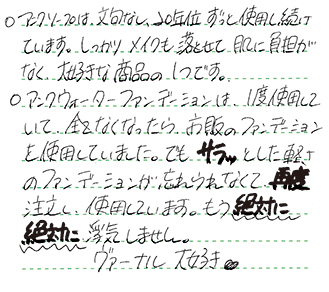 ○アンクソープは文句なし、20年位 ずっと使用し続け
ています。しっかりメイクも落とせて 肌に負担が
なく、大好きな商品の1つです。
○アンクウォーターファンデーションは、1度使用して
いて、全てなくなったら、市販のファンデーション
を使用していました。でも サラッとした軽さ
のファンデーションが忘れられなくて 再度
注文し、使用しています。もう絶対に
絶対に 浮気しません。
ヴァーナル 大好き